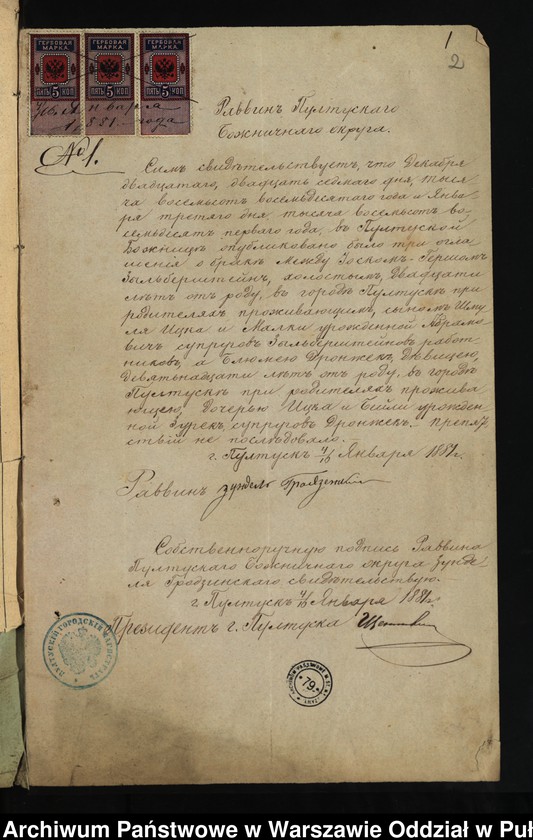 1
2
ГЕРБОВАЯ МАРКА. ГЕРБОВАЯ МАРКА. ГЕРБОВАЯ МАРКА.
ПЯТЬ 5 КОП ПЯТЬ 5 КОП ПЯТЬ 5 КОП
Января
1881 года
Раввинъ Пултускаго
Божничнаго округа.
№ 1.
Симъ свидѣтельствуетъ, что Декабря
двадцатаго, двадцать седьмаго дня, тыся-
ча восемьсотъ восемьдесятаго года и Янва-
ря третяго дня, тысяча восемьсотъ во-
семьдесятъ перваго года, въ Пултуской
Божницѣ опубликовано было три огла-
шенія о бракѣ между Іоскомъ-Гершомъ
Зыльберштейнъ, холостымъ, двадцати
лѣтъ отъ роду, въ городѣ Пултускѣ при
родителяхъ проживающимъ, сыномъ Шму-
ля Ицка и Малки урожденной Абрамо-
вичъ супруговъ Зыльберштейновъ работ-
никовъ, а Блюмею Дронжекъ, дѣвицею,
девятьнадцати лѣтъ отъ роду, въ городѣ
Пултускѣ при родителяхъ прожива-
ющею, дочерью Ицка и Бейли урожден-
ной Турекъ, супруговъ Дронжекъ. Препят-
ствій не послѣдовало.
г. Пултускъ 4/10 Января 1881 г.
Раввинъ Зундель
Собственноручную подпись Раввина
Пултускаго Божничнаго округа Зунде-
ля Гродзинскаго свидѣтельствую.
г. Пултускъ 4/10 Января 1881 г.
Президентъ г. Пултуска
ПУЛТУСКІЙ ГОРОДСКІЙ МАГИСТРАТЪ
79
Archiwum Państwowe w Warszawie Oddział w Puł